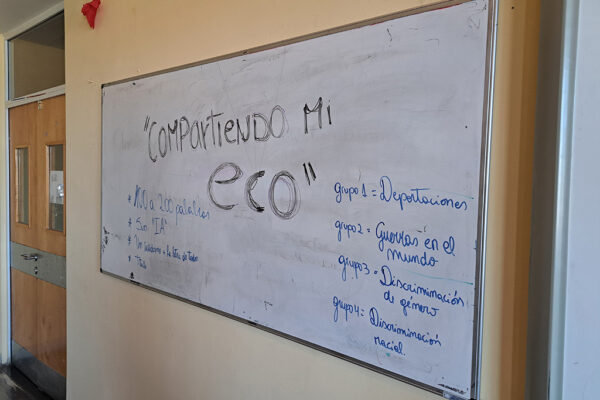 "COMPARTIENDO MI
eco"
* 100 a 200 palabras
* Sin "IA"
* Un
grupo 1 = Deportaciones
grupo 2 = Guerras en el
mundo
grupo 3 = Discriminación
de género
grupo 4 = Discriminación
racial.